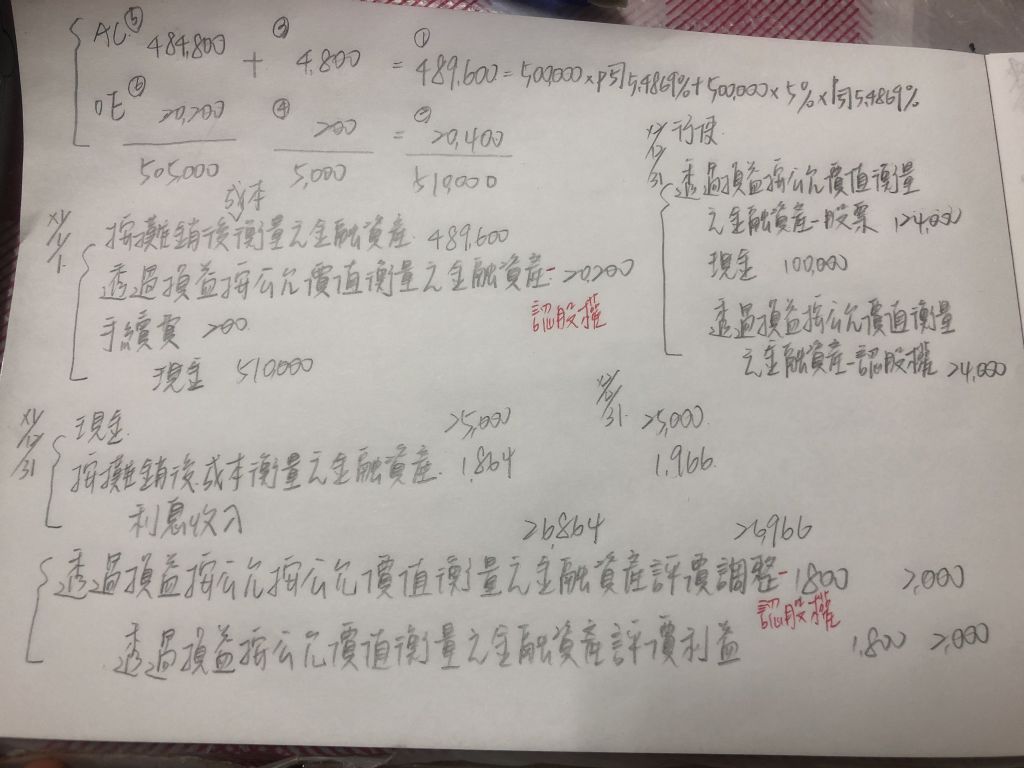 AC ⑤ 484,800 + ③ 4,800 = ① 489,600 = 500,000×P司5.4869%+500,000×5%×P司5.4869%
OE ⑥ 20,200 ④ 200 = ② 20,400
505,000 5,000 510,000
成本
按攤銷後衡量之金融資產 489,600
透過損益按公允價值衡量之金融資產-20,200
認股權
手續費 200
現金 510,000
12/31 行使
透過損益按公允價值衡量
之金融資產-股票 124,000
現金 100,000
透過損益按公允價值衡量
之金融資產-認股權 24,000
12/31 現金 25,000 12/31 25,000
按攤銷後成本衡量之金融資產 1,864 1,966
利息收入 26,864 26,966
透過損益按公允按公允價值衡量之金融資產評價調整-1800 2,000
認股權
透過損益按公允價值衡量之金融資產評價利益 1,800 2,000